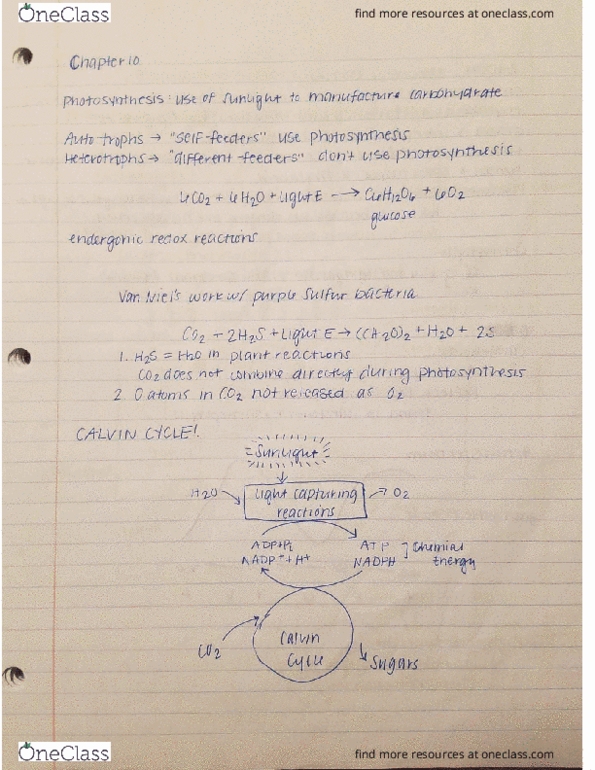 OneClass
find more resources at oneclass.com
Chapter 10
photosynthesis: use of sunlight to manufacture carbohydrate
Autotrophs → "self-feeders" use photosynthesis
Heterotrophs → "different feeders" don't use photosynthesis
6CO2 + 6H2O + light E → C6H12O6 + 6O2
glucose
endergonic redox reactions
Van Niel's work w/ purple sulfur bacteria
CO2 + 2H2S + Light E → (CH2O)2 + H2O + 2S
1. H2S = H2O in plant reactions
CO2 does not combine directly during photosynthesis
2. O atoms in CO2 not released as O2
CALVIN CYCLE!
Sunlight
H2O
light capturing
reactions
O2
ADP+Pi
NADP+ + H+
ATP
NADPH
] Chemical
Energy
CO2
Calvin
Cycle
Sugars
OneClass
find more resources at oneclass.com